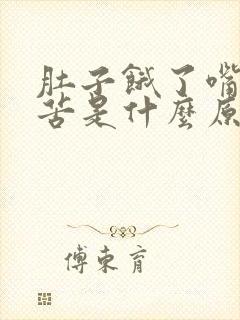 肚子餓了嘴
苦是什麼原
傅東育